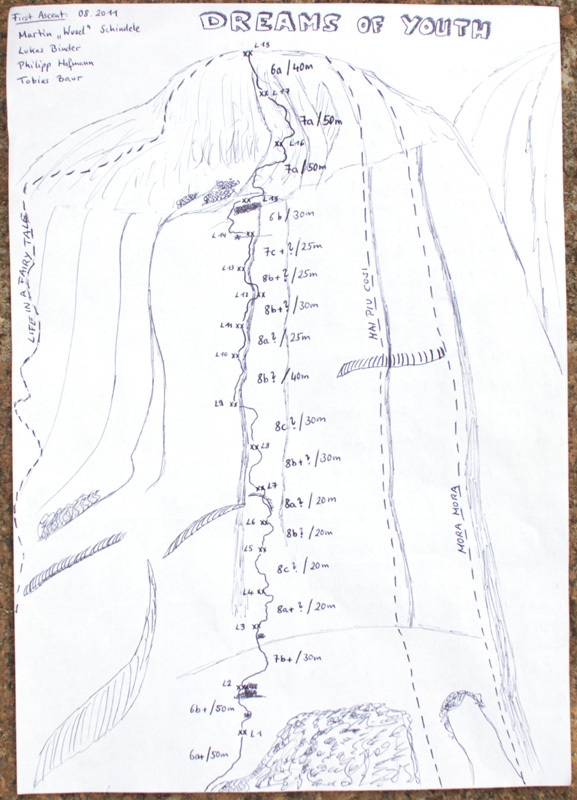 DREAMS OF YOUTH
First Ascent: 08.2011
Martin „Wusel" Schindele
Lukas Binder
Philipp Hofmann
Tobias Baur
L18
6a/40m
L17
7a/50m
L16
7a/50m
L15
6b/30m
L14
7c+?/25m
L13
8b+?/25m
L12
8b+?/30m
L11
8a?/25m
L10
8b?/40m
L9
8c?/30m
L8
8b+?/30m
L7
8a?/20m
L6
8b?/20m
L5
8c?/20m
L4
8a+?/20m
L3
7b+/30m
L2
6b+/50m
L1
6a+/50m
LIFE IN A FAIRY TALE
MAI PIU COSI
MORA MORA